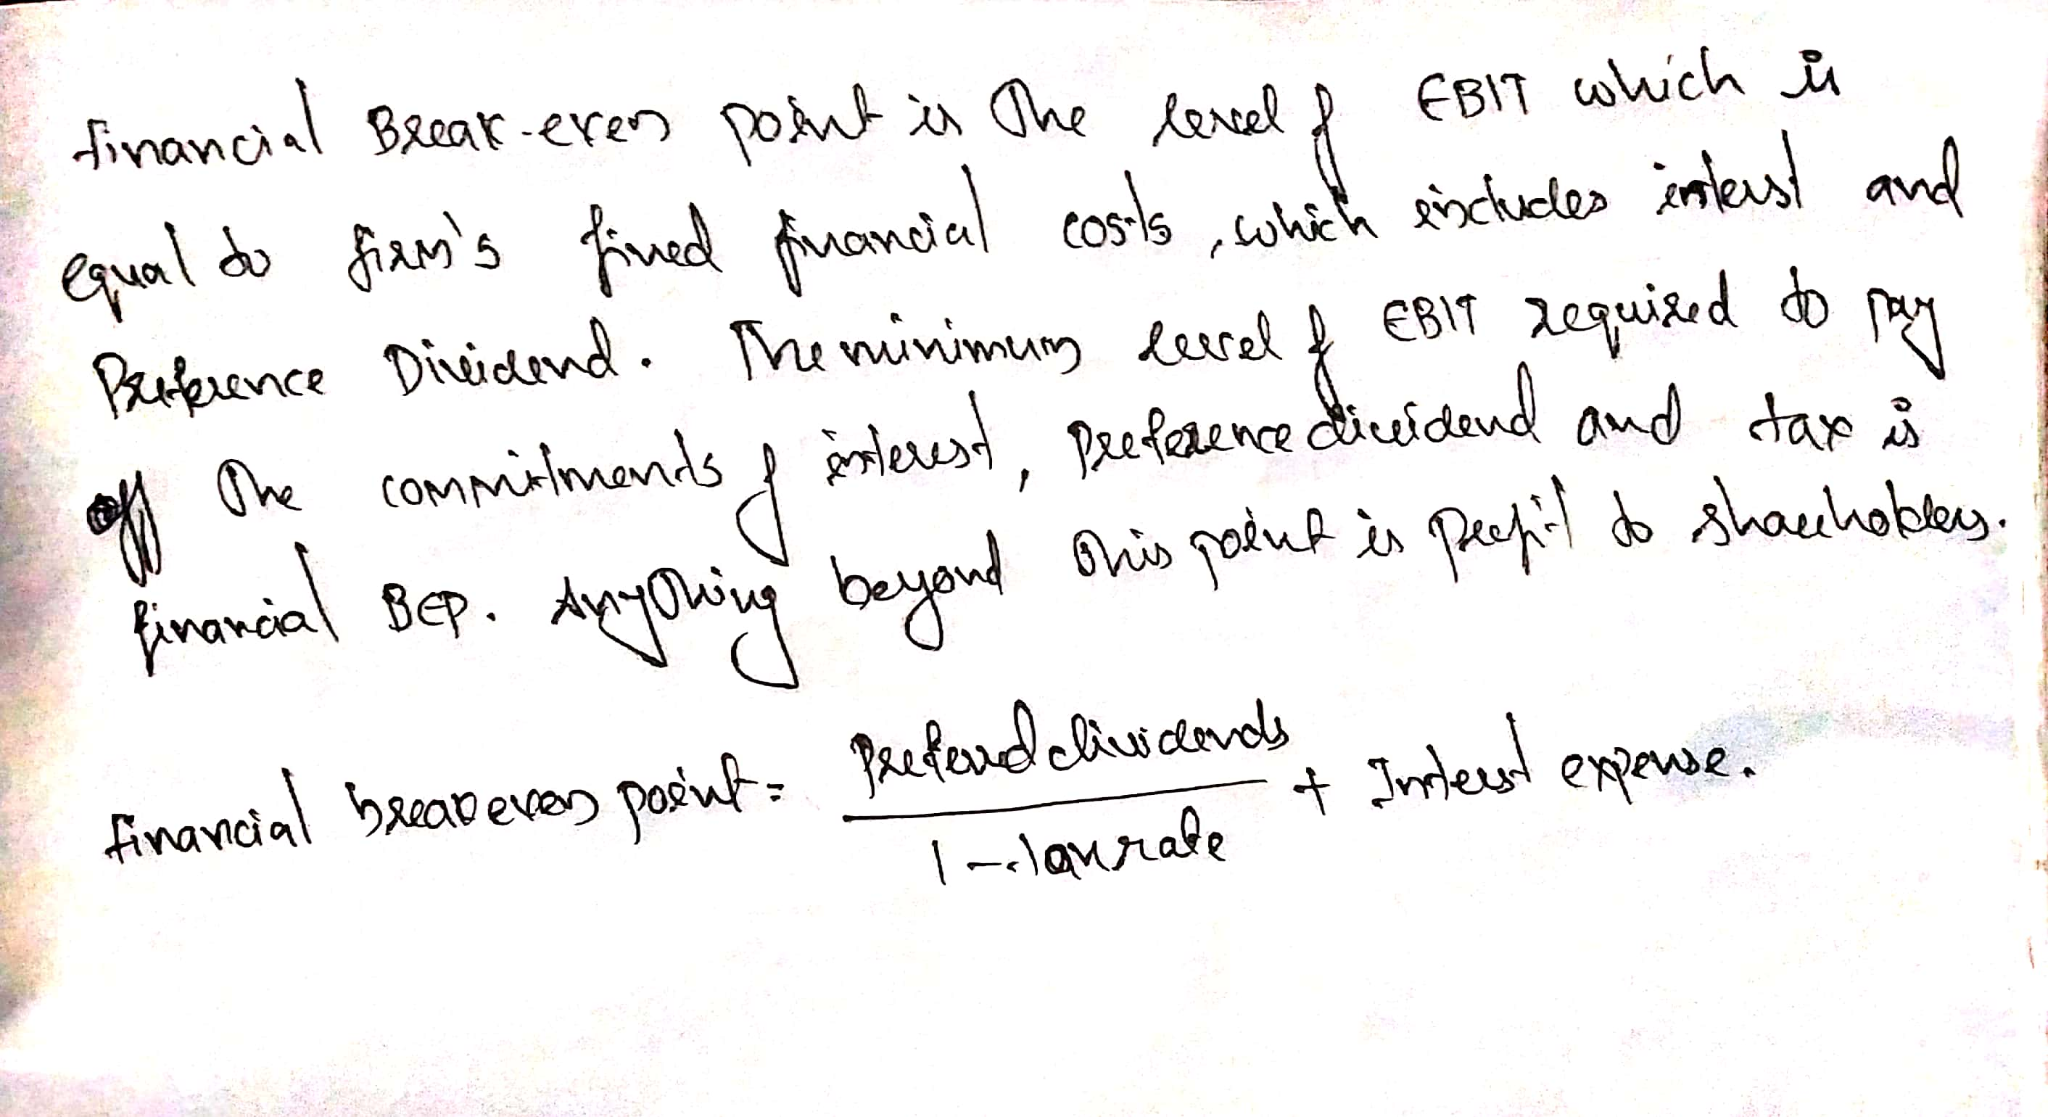 financial Break-even point is the level of EBIT which is
equal to firm's fixed financial costs, which includes interest and
Preference Dividend. The minimum level of EBIT required to pay
off the commitments of interest, Preference dividend and tax is
financial BEP. Anything beyond this point is profit to shareholders.
financial breakeven point = Preferred dividends / 1 - tax rate + Interest expense.